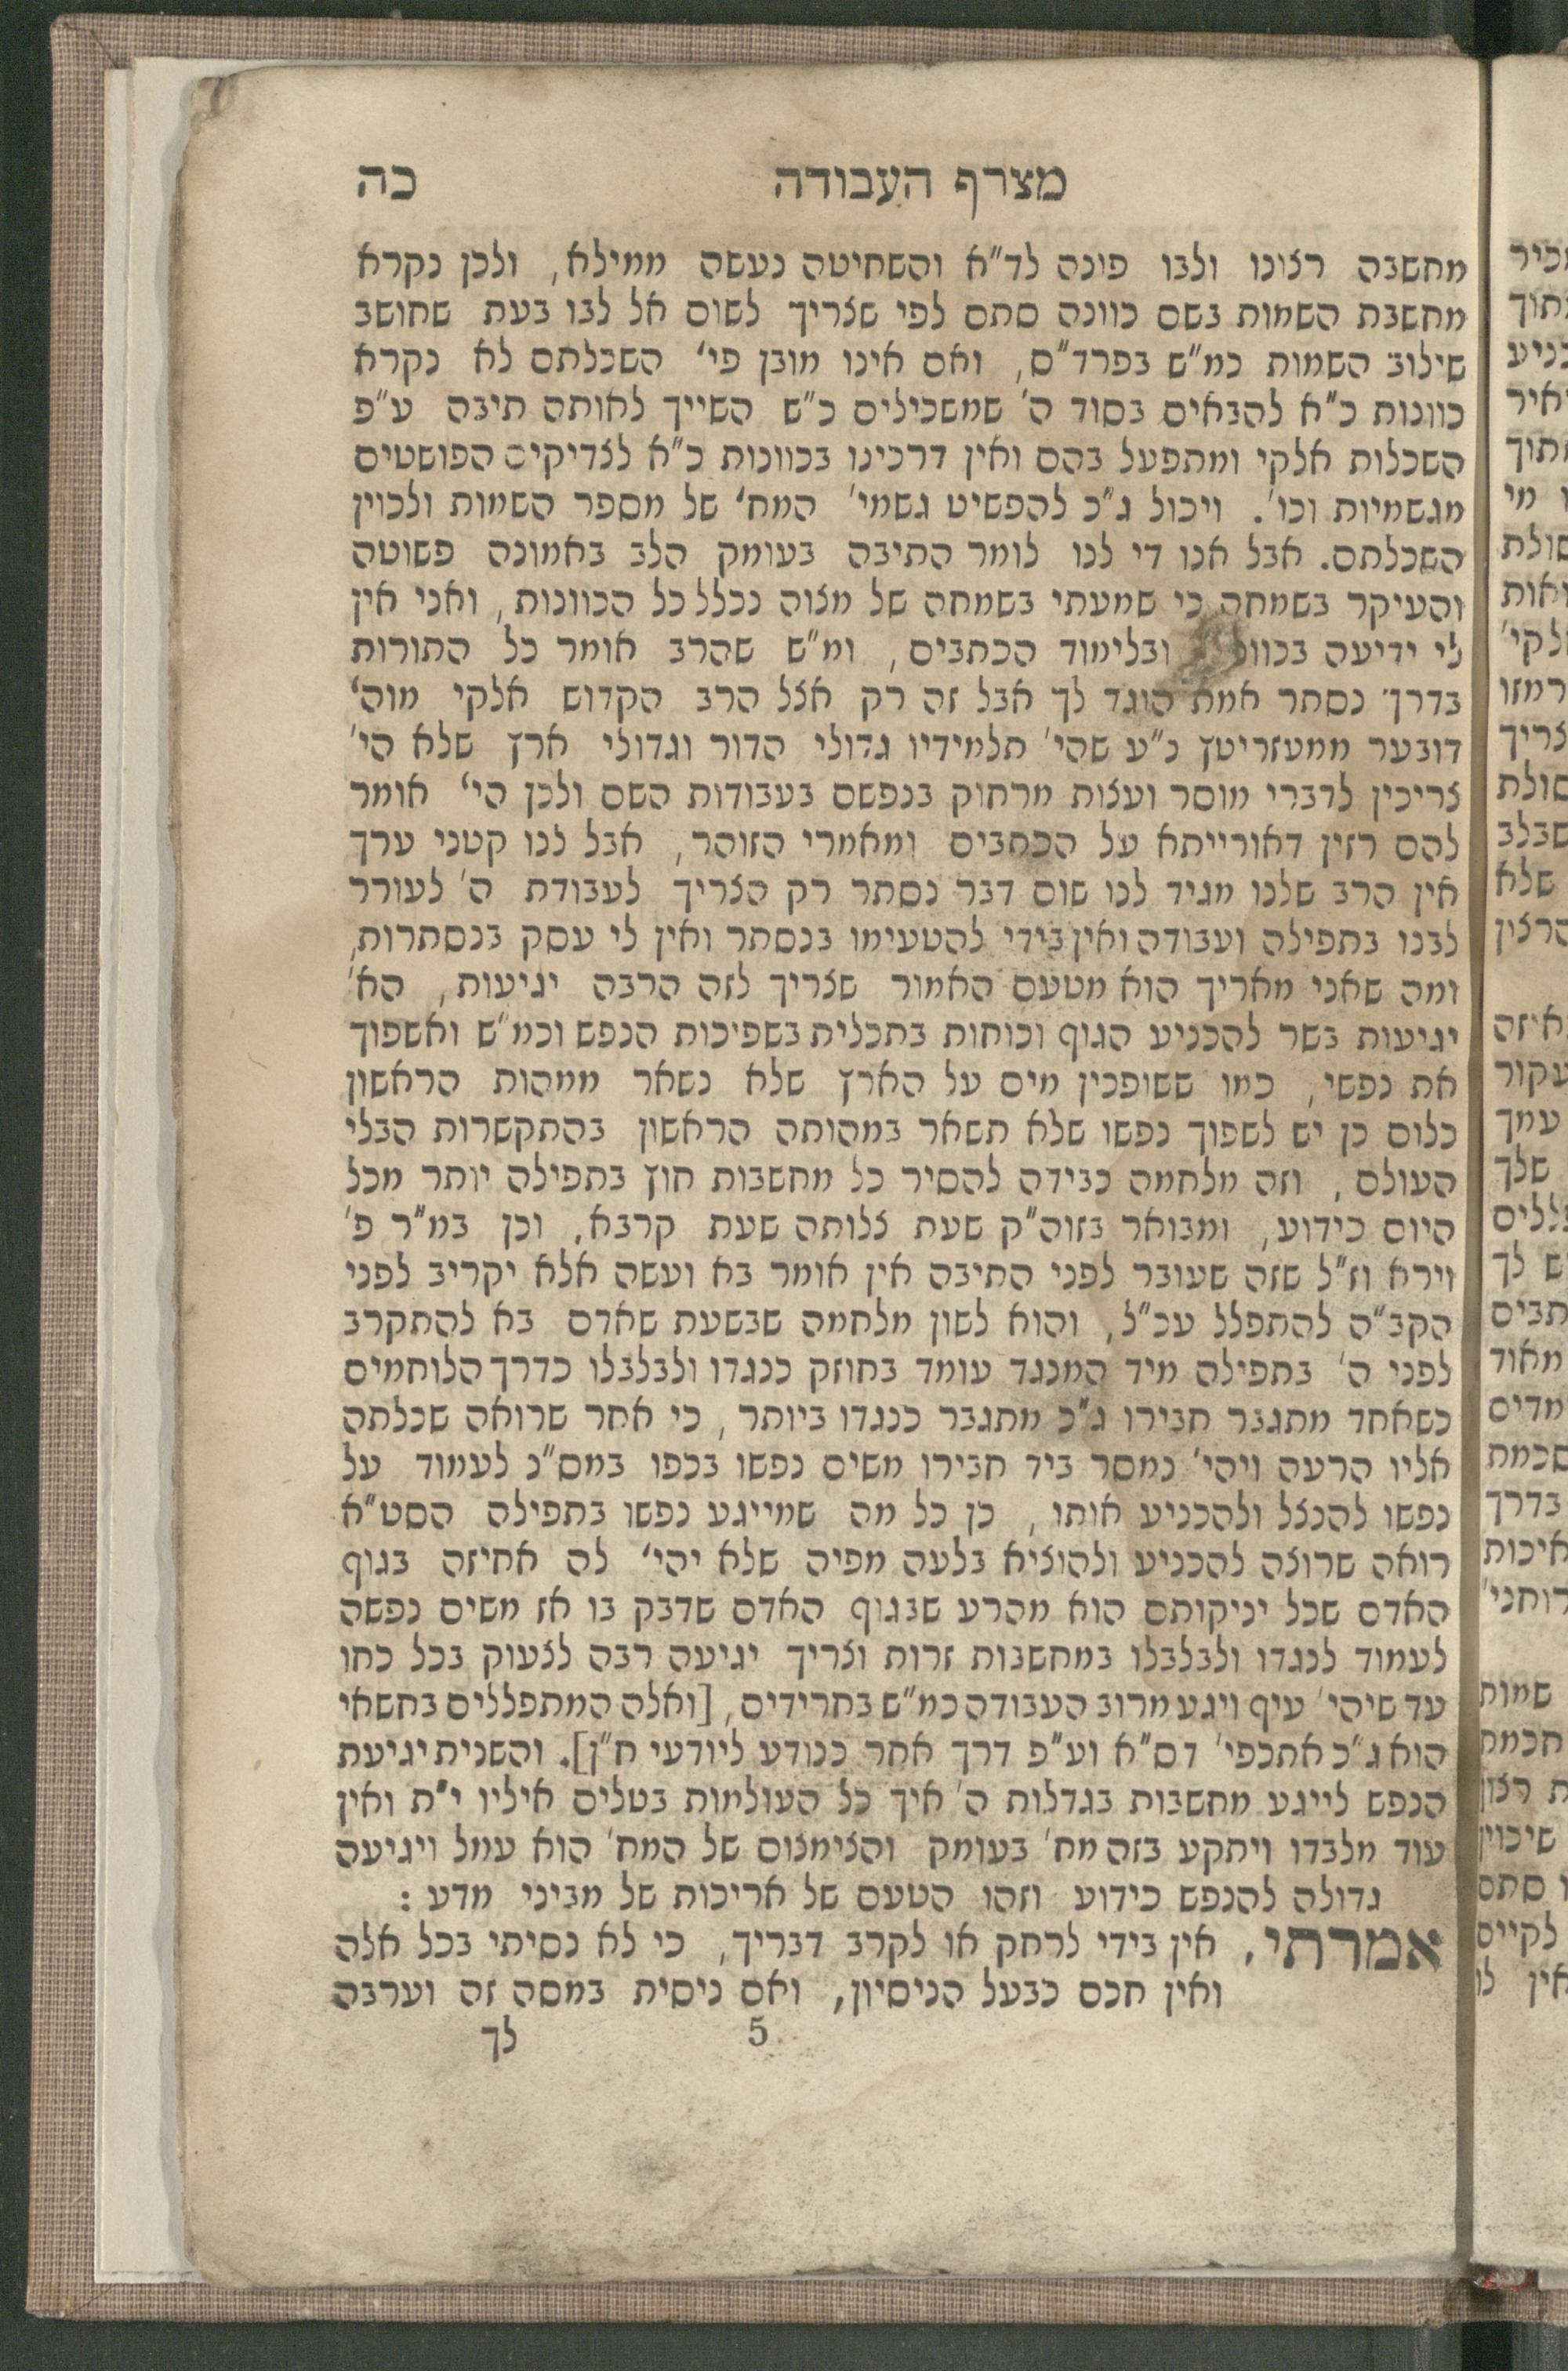 מצרף העבודה
כה
מחשבה רצונו ולבו פונה לד"א והשחיטה נעשה ממילא, ולכן נקרא
מחשבת השמות בשם כוונה סתם לפי שצריך לשום אל לבו בעת שחושב
שילוב השמות כמ"ש בפרד"ס, ואם אינו מובן פי' השכלתם לא נקרא
כוונות כ"א להבאים בסוד ה' שמשכילים כ"ש השייך לאותה תיבה ע"פ
השכלות אלקי ומתפעל בהם ואין דרכינו בכוונות כ"א לצדיקים הפושטים
מגשמיות וכו'. ויכול ג"כ להפשיט גשמי' המח' של מספר השמות ולכוין
השכלתם. אבל אנו די לנו לומר התיבה בעומק הלב באמונה פשוטה
והעיקר בשמחה כי שמעתי בשמחה של מצוה נכלל כל הכוונות, ואני אין
לי ידיעה ובלימוד הכתבים, ומ"ש שהרב אומר כל התורות
בדרך נסתר אמת הוגד לך אבל זה רק אצל הרב הקדוש אלקי מוה'
דובער ממעזריטץ נ"ע שהי' תלמידיו גדולי הדור וגדולי ארץ שלא הי'
צריכין לדברי מוסר ועצות מרחוק בנפשם בעבודות השם ולכן הי' אומר
להם רזין דאורייתא על הכתבים ומאמרי הזוהר, אבל לנו קטני ערך
אין הרב שלנו מגיד לנו שום דבר נסתר רק הצריך לעבודת ה' לעורר
לבנו בתפילה ועבודה ואין בידי להטעימו בנסתר ואין לי עסק בנסתרות,
ומה שאני מאריך הוא מטעם האמור שצריך לזה הרבה יגיעות, הא'
יגיעות בשר להכניע הגוף וכוחות בתכלית בשפיכות הנפש וכמ"ש ואשפוך
את נפשי, כמו ששופכין מים על הארץ שלא נשאר ממהות הראשון
כלום כן יש לשפוך נפשו שלא תשאר במהותה הראשון בהתקשרות הבלי
העולם, וזה מלחמה כבידה להסיר כל מחשבות חוץ בתפילה יותר מכל
היום כידוע, ומבואר בזוה"ק שעת צלותה שעת קרבא. וכן במ"ר פ'
וירא וז"ל שזה שעובר לפני התיבה אין אומר בא ועשה אלא יקריב לפני
הקב"ה להתפלל עכ"ל, והוא לשון מלחמה שבשעת שאדם בא להתקרב
לפני ה' בתפילה מיד המנגד עומד בחוזק כנגדו ולבלבלו כדרך הלוחמים
כשאחד מתגבר חבירו ג"כ מתגבר כנגדו ביותר, כי אחר שרואה שכלתה
אליו הרעה ויהי' נמסר ביד חבירו משים נפשו בכפו במס"נ לעמוד על
נפשו להנצל ולהכניע אותו, כן כל מה שמייגע נפשו בתפילה הסט"א
רואה שרוצה להכניע ולהוציא בלעה מפיה שלא יהי' לה אחיזה בגוף
האדם שכל יניקותם הוא מהרע שבגוף האדם שדבק בו אז משים נפשה
לעמוד לנגדו ולבלבלו במחשבות זרות וצריך יגיעה רבה לצעוק בכל כחו
עד שיהי' עיף ויגע מרוב העבודה כמ"ש בחרידים, [ואלה המתפללים בחשאי
הוא ג"כ אתכפי' דס"א וע"פ דרך אחר כנודע ליודעי ח"ן]. והשנית יגיעת
הנפש לייגע מחשבות בגדלות ה' איך כל העולמות בטלים איליו י"ת ואין
עוד מלבדו ויתקע בזה מח' בעומק והצימצום של המח' הוא עמל ויגיעה
גדולה להנפש כידוע וזהו הטעם של אריכות של מביני מדע:
אמרתי, אין בידי לרחק או לקרב דבריך, כי לא נסיתי בכל אלה
ואין חכם כבעל הניסיון, ואם ניסית במסה זה וערבה
5
לך